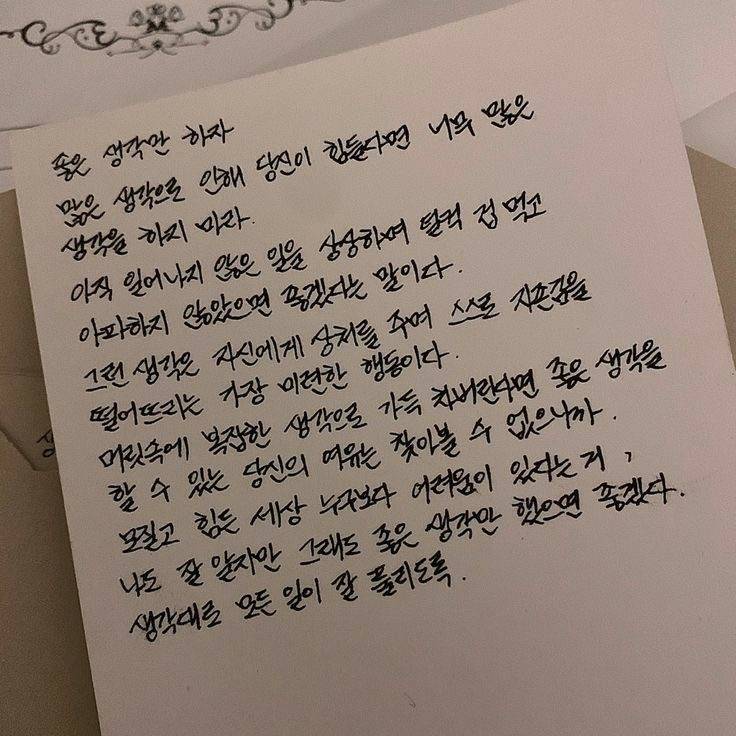 좋은 생각만 하자
많은 생각으로 인해 당신이 힘들다면 너무 많은
생각을 하지 마라.
아직 일어나지 않은 일을 상상하며 덜컥 겁 먹고
아파하지 않았으면 좋겠다는 말이다.
그런 생각은 자신에게 상처를 주며 스스로 자존감을
떨어뜨리는 가장 미련한 행동이다.
머릿속에 복잡한 생각으로 가득 차버린다면 좋은 생각을
할 수 있는 당신의 여유는 찾아볼 수 없으니까.
모질고 힘든 세상 누구보다 어려움이 있다는 거,
나도 잘 알지만 그래도 좋은 생각만 했으면 좋겠다.
생각대로 모든 일이 잘 풀리도록.